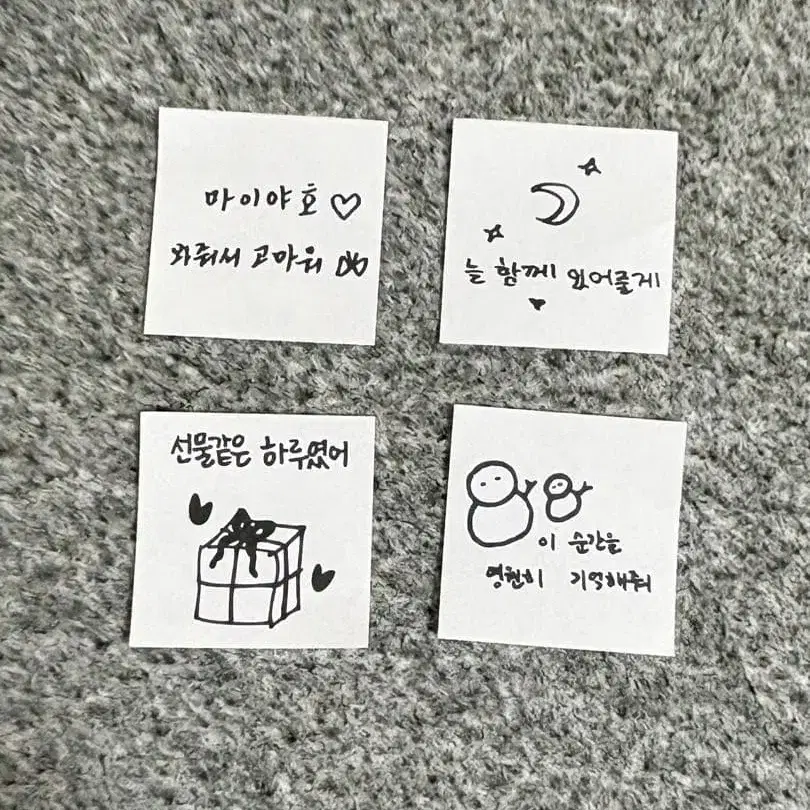 마이야호♡
와줘서 고마워
늘 함께 있어줄게
선물같은 하루였어
이 순간을
영원히 기억해줘